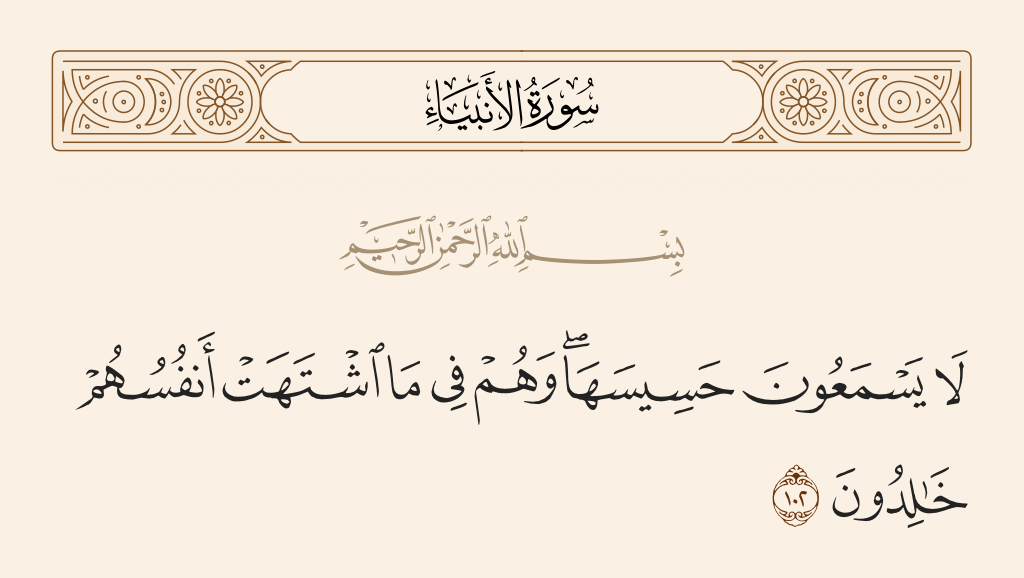 سُورَةُ الأَنبِيَاءِ
بِسْمِ ٱللَّهِ ٱلرَّحْمَٰنِ ٱلرَّحِيمِ
لَا يَسْمَعُونَ حَسِيسَهَا ۖ وَهُمْ فِى مَا ٱشْتَهَتْ أَنفُسُهُمْ
خَـٰلِدُونَ ١٠٢